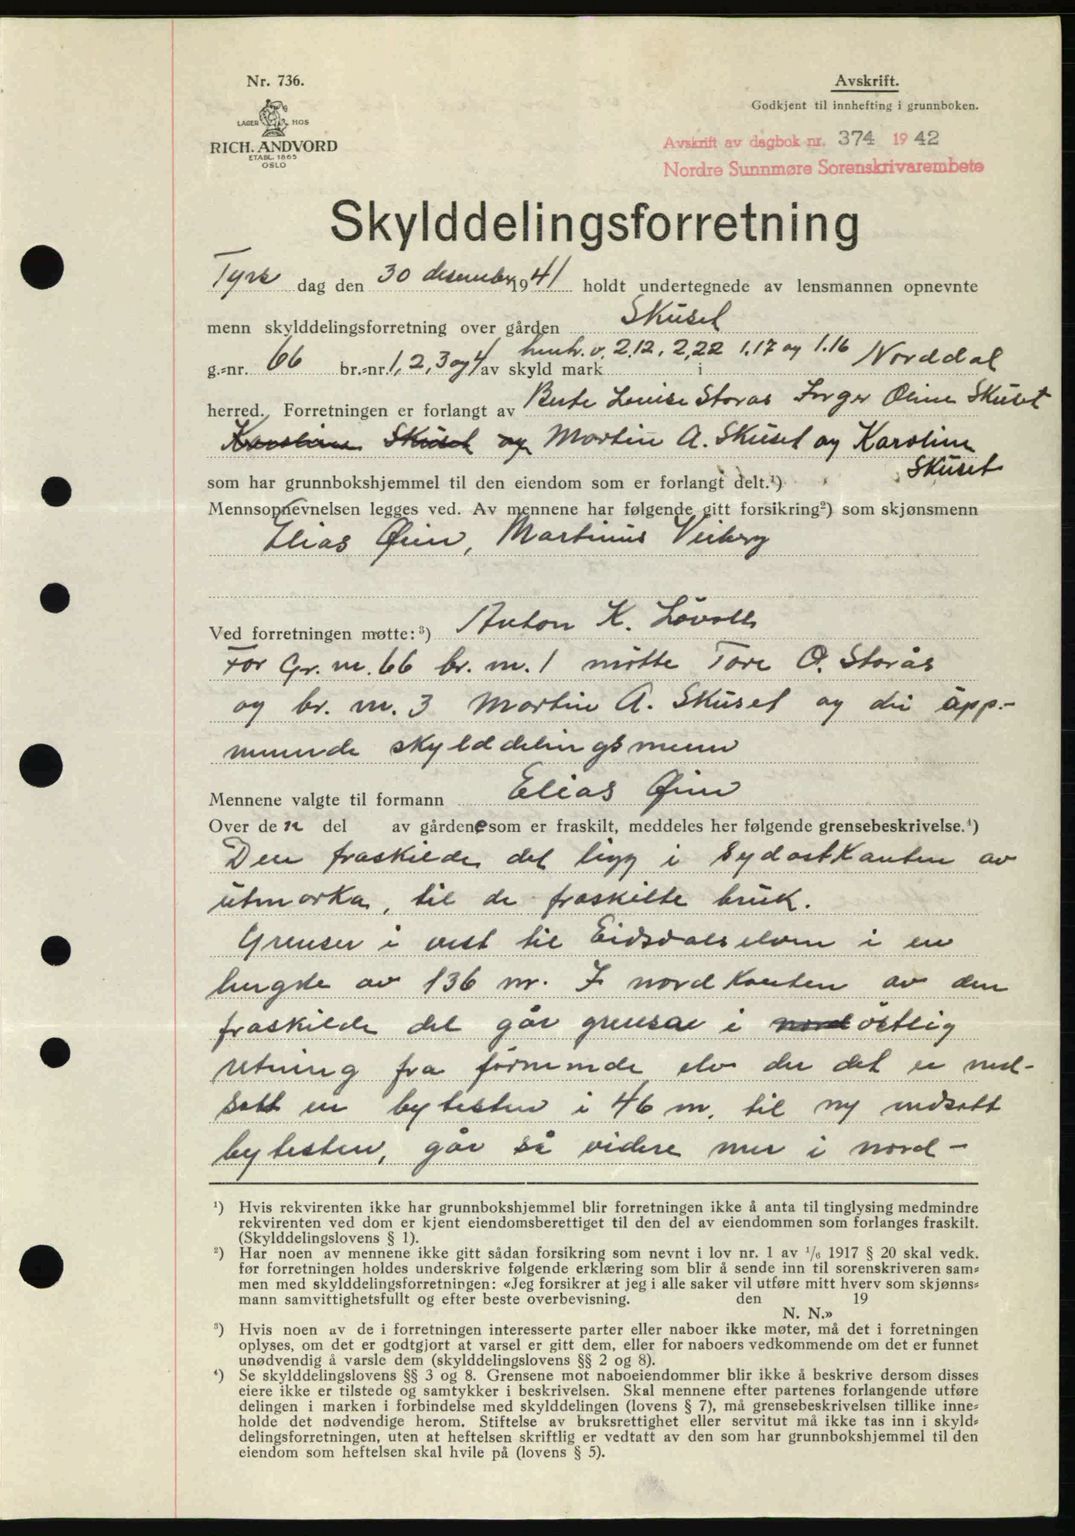 Nr. 736.
LAGER HOS
RICH. ANDVORD
ETABL. 1865
OSLO
Avskrift.
Godkjent til innhefting i grunnboken.
Avskrift av dagbok nr. 374 1942
Nordre Sunnmøre Sorenskrivarembete
Skylddelingsforretning
Tyrs dag den 30 desember 1941 holdt undertegnede av lensmannen opnevnte
menn skylddelingsforretning over gården Skuset
g.=nr. 66 br.=nr. 1, 2, 3 og 4 av skyld mark henh.v. 2.12, 2,22 1.17 og 1.16 i Norddal
herred. Forretningen er forlangt av Berte Lovise Storås Inger Øinn Skuset
Karoline Skuset og Martin A. Skuset og Karoline
Skuset
som har grunnbokshjemmel til den eiendom som er forlangt delt.¹)
Mennsopnevnelsen legges ved. Av mennene har følgende gitt forsikring²) som skjønsmenn
Elias Øinn, Martinus Veiberg
Anton K. Løvoll
Ved forretningen møtte:³)
For Gr. nr. 66 br. nr. 1 møtte Tore O. Storås
og br. nr. 3 Martin A. Skuset og dei opp-
nemnde skylddelingsmenn
Mennene valgte til formann Elias Øinn
Over den del av gårdene som er fraskilt, meddeles her følgende grensebeskrivelse.⁴)
Den fraskilde del ligg i sydostkanten av
utmarka, til de fraskilte bruk.
Grenser i vest til Eidsdalselven i en
lengde av 136 m. I nordkanten av den
fraskilde del går grensa i nord østlig
retning fra førnemnde elv der det er ned-
satt en bytesten i 46 m. til ny nedsatt
bytesten, går så videre mer i nord-
¹) Hvis rekvirenten ikke har grunnbokshjemmel blir forretningen ikke å anta til tinglysing medmindre
rekvirenten ved dom er kjent eiendomsberettiget til den del av eiendommen som forlanges fraskilt.
(Skylddelingslovens § 1).
²) Har noen av mennene ikke gitt sådan forsikring som nevnt i lov nr. 1 av ¹/₆ 1917 § 20 skal vedk.
før forretningen holdes underskrive følgende erklæring som blir å sende inn til sorenskriveren sam=
men med skylddelingsforretningen: «Jeg forsikrer at jeg i alle saker vil utføre mitt hverv som skjønns=
mann samvittighetsfullt og efter beste overbevisning. den 19
N. N.»
³) Hvis noen av de i forretningen interesserte parter eller naboer ikke møter, må det i forretningen
oplyses, om det er godtgjort at varsel er gitt dem, eller for naboers vedkommende om det er funnet
unødvendig å varsle dem (skylddelingslovens §§ 2 og 8).
⁴) Se skylddelingslovens §§ 3 og 8. Grensene mot naboeiendommer blir ikke å beskrive dersom disses
eiere ikke er tilstede og samtykker i beskrivelsen. Skal mennene efter partenes forlangende utføre
delingen i marken i forbindelse med skylddelingen (lovens § 7), må grensebeskrivelsen tillike inne=
holde det nødvendige herom. Stiftelse av bruksrettighet eller servitut må ikke tas inn i skyld=
delingsforretningen, uten at heftelsen skriftlig er vedtatt av den som har grunnbokshjemmel til den
eiendom som heftelsen skal hvile på (lovens § 5).